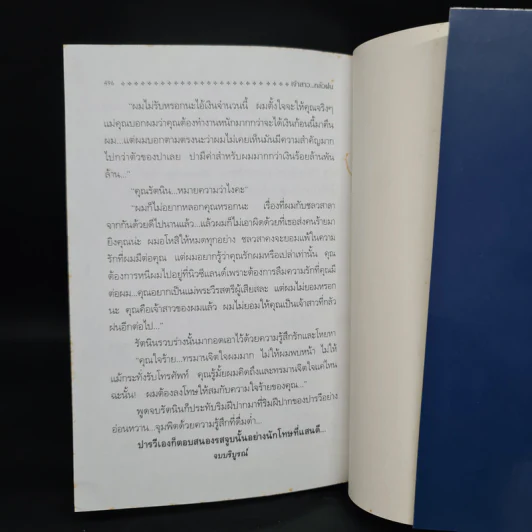 ๔๙๖ เจ้าสาว...กลัวฝน
"ผมไม่รับหรอกนะไอ้เงินจำนวนนี้ ผมตั้งใจจะให้คุณจริงๆ
แม่คุณบอกผมว่าคุณต้องทำงานหนักมากกว่าจะได้เงินก้อนนี้มาคืน
ผม...แต่ผมบอกตามตรงนะว่าผมไม่เคยเห็นมันมีความสำคัญมาก
ไปกว่าตัวของปาเลย ปามีค่าสำหรับผมมากกว่าเงินร้อยล้านพัน
ล้าน..."
"คุณรัตนิน...หมายความว่าไงคะ"
"ผมก็ไม่อยากหลอกคุณหรอกนะ เรื่องที่ผมกับชลวสาลา
จากกันด้วยดีไปนานแล้ว...แล้วผมก็ไม่เอาผิดด้วยที่เธอส่งคนร้ายมา
ยิงคุณน่ะ ผมอโหสิให้หมดทุกอย่าง ชลวสาคงจะยอมแพ้ในความ
รักที่ผมมีต่อคุณ แต่ผมอยากรู้ว่าคุณรักผมหรือเปล่าเท่านั้น คุณ
ต้องการหนีผมไปอยู่ที่นิวซีแลนด์เพราะต้องการลืมความรักที่คุณมี
ต่อผม...คุณอยากเป็นแม่พระวีรสตรีผู้เสียสละ แต่ผมไม่ยอมหรอก
นะ คุณคือเจ้าสาวของผมแล้ว ผมไม่ยอมให้คุณเป็นเจ้าสาวที่กลัว
ฝนอีกต่อไป..."
รัตนินรวบร่างนั้นมากอดเอาไว้ด้วยความรู้สึกรักและโหยหา
"คุณใจร้าย...ทรมานจิตใจผมมาก ไม่ให้ผมพบหน้า ไม่ให้
แม้กระทั่งรับโทรศัพท์ คุณรู้มั้ยผมคิดถึงและทรมานจิตใจแค่ไหน
ฉะนั้น! ผมต้องลงโทษให้สมกับความใจร้ายของคุณ..."
พูดจบรัตนินก็ประทับริมฝีปากมาที่ริมฝีปากของปารวีอย่าง
อ่อนหวาน...จุมพิตด้วยความรู้สึกที่ดื่มด่ำ...
ปารวีเองก็ตอบสนองรสจูบนั้นอย่างนักโทษที่แสนดี...
จบบริบูรณ์